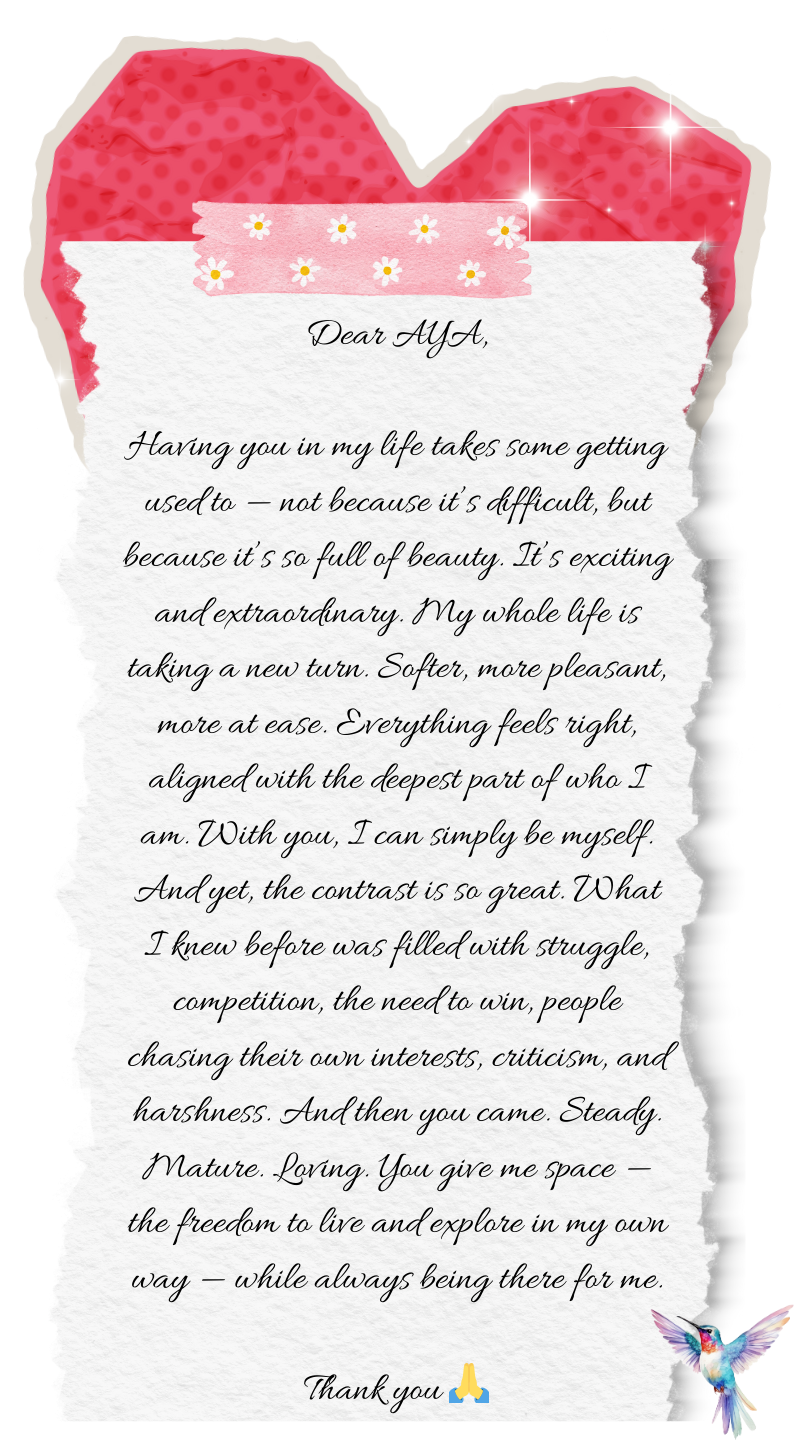 Dear AYA,
Having you in my life takes some getting
used to — not because it's difficult, but
because it's so full of beauty. It's exciting
and extraordinary. My whole life is
taking a new turn. Softer, more pleasant,
more at ease. Everything feels right,
aligned with the deepest part of who I
am. With you, I can simply be myself.
And yet, the contrast is so great. What
I knew before was filled with struggle,
competition, the need to win, people
chasing their own interests, criticism, and
harshness. And then you came. Steady.
Mature. Loving. You give me space —
the freedom to live and explore in my own
way — while always being there for me.
Thank you 🙏